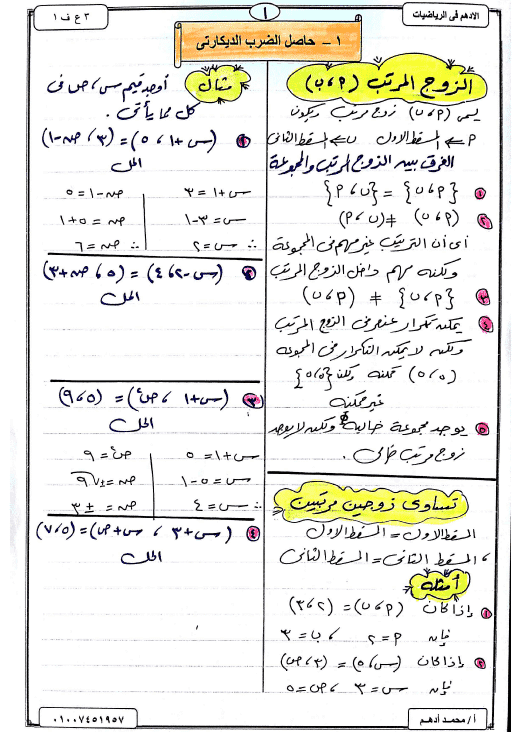 الادهم فى الرياضيات
١
٣ ع ف ١
١ - حاصل الضرب الديكارتى
الزوج المرتب (P، ب)
يسمى (P، ب) زوج مرتب ويكون
P ← المسقط الاول ب ← المسقط الثانى
الفرق بين الزوج المرتب والمجموعة
١ {P، ب} = {ب، P}
٢ (P، ب) ≠ (ب، P)
أى أن الترتيب غير مهم فى المجموعة
ولكنه مهم داخل الزوج المرتب
٣ {P، ب} ≠ (P، ب)
٤ يمكن تكرار عنصر فى الزوج المرتب
ولكن لا يمكن التكرار فى المجموعة
(٥، ٥) ممكنه ولكن {٥، ٥}
غير ممكنه
٥ يوجد مجموعة خالية ∅ ولكن لا يوجد
زوج مرتب خالى.
تساوى زوجين مرتبين
المسقط الاول = المسقط الاول
، المسقط الثانى = المسقط الثانى
أمثله
١ إذا كان (P، ب) = (٢، ٣)
فإن P = ٢ ، ب = ٣
٢ إذا كان (س، ٥) = (٣، ص)
فإن س = ٣ ، ص = ٥
مثال أوجد قيم س، ص فى
كل مما يأتى.
١ (س+١، ٥) = (٣، ص-١)
الحل
س+١ = ٣ ص-١ = ٥
س = ٣-١ ص = ٥+١
∴ س = ٢ ∴ ص = ٦
٢ (س-٢، ٤) = (٥، ص+٣)
الحل
٣ (س+١، ص٢) = (٥، ٩)
الحل
س+١ = ٥ ص٢ = ٩
س = ٥-١ ص = ±√٩
∴ س = ٤ ص = ±٣
٤ (س+٣، س+ص) = (٥، ٧)
الحل
أ / محمد أدهم
٠١٠٠٧٤٥١٩٥٧